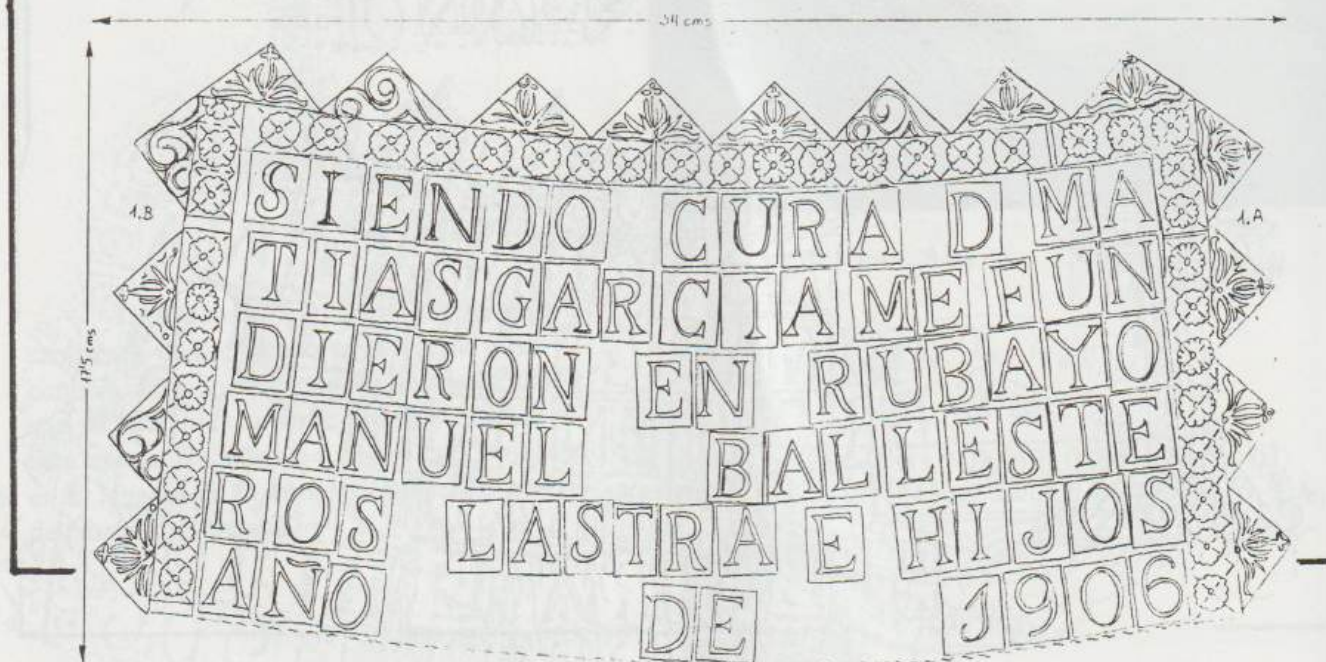 34 cms
17'5 cms
1.B
1.A
SIENDO CURA D MA
TIAS GARCIA ME FUN
DIERON EN RUBAYO
MANUEL BALLESTE
ROS LASTRA E HIJOS
AÑO DE 1906